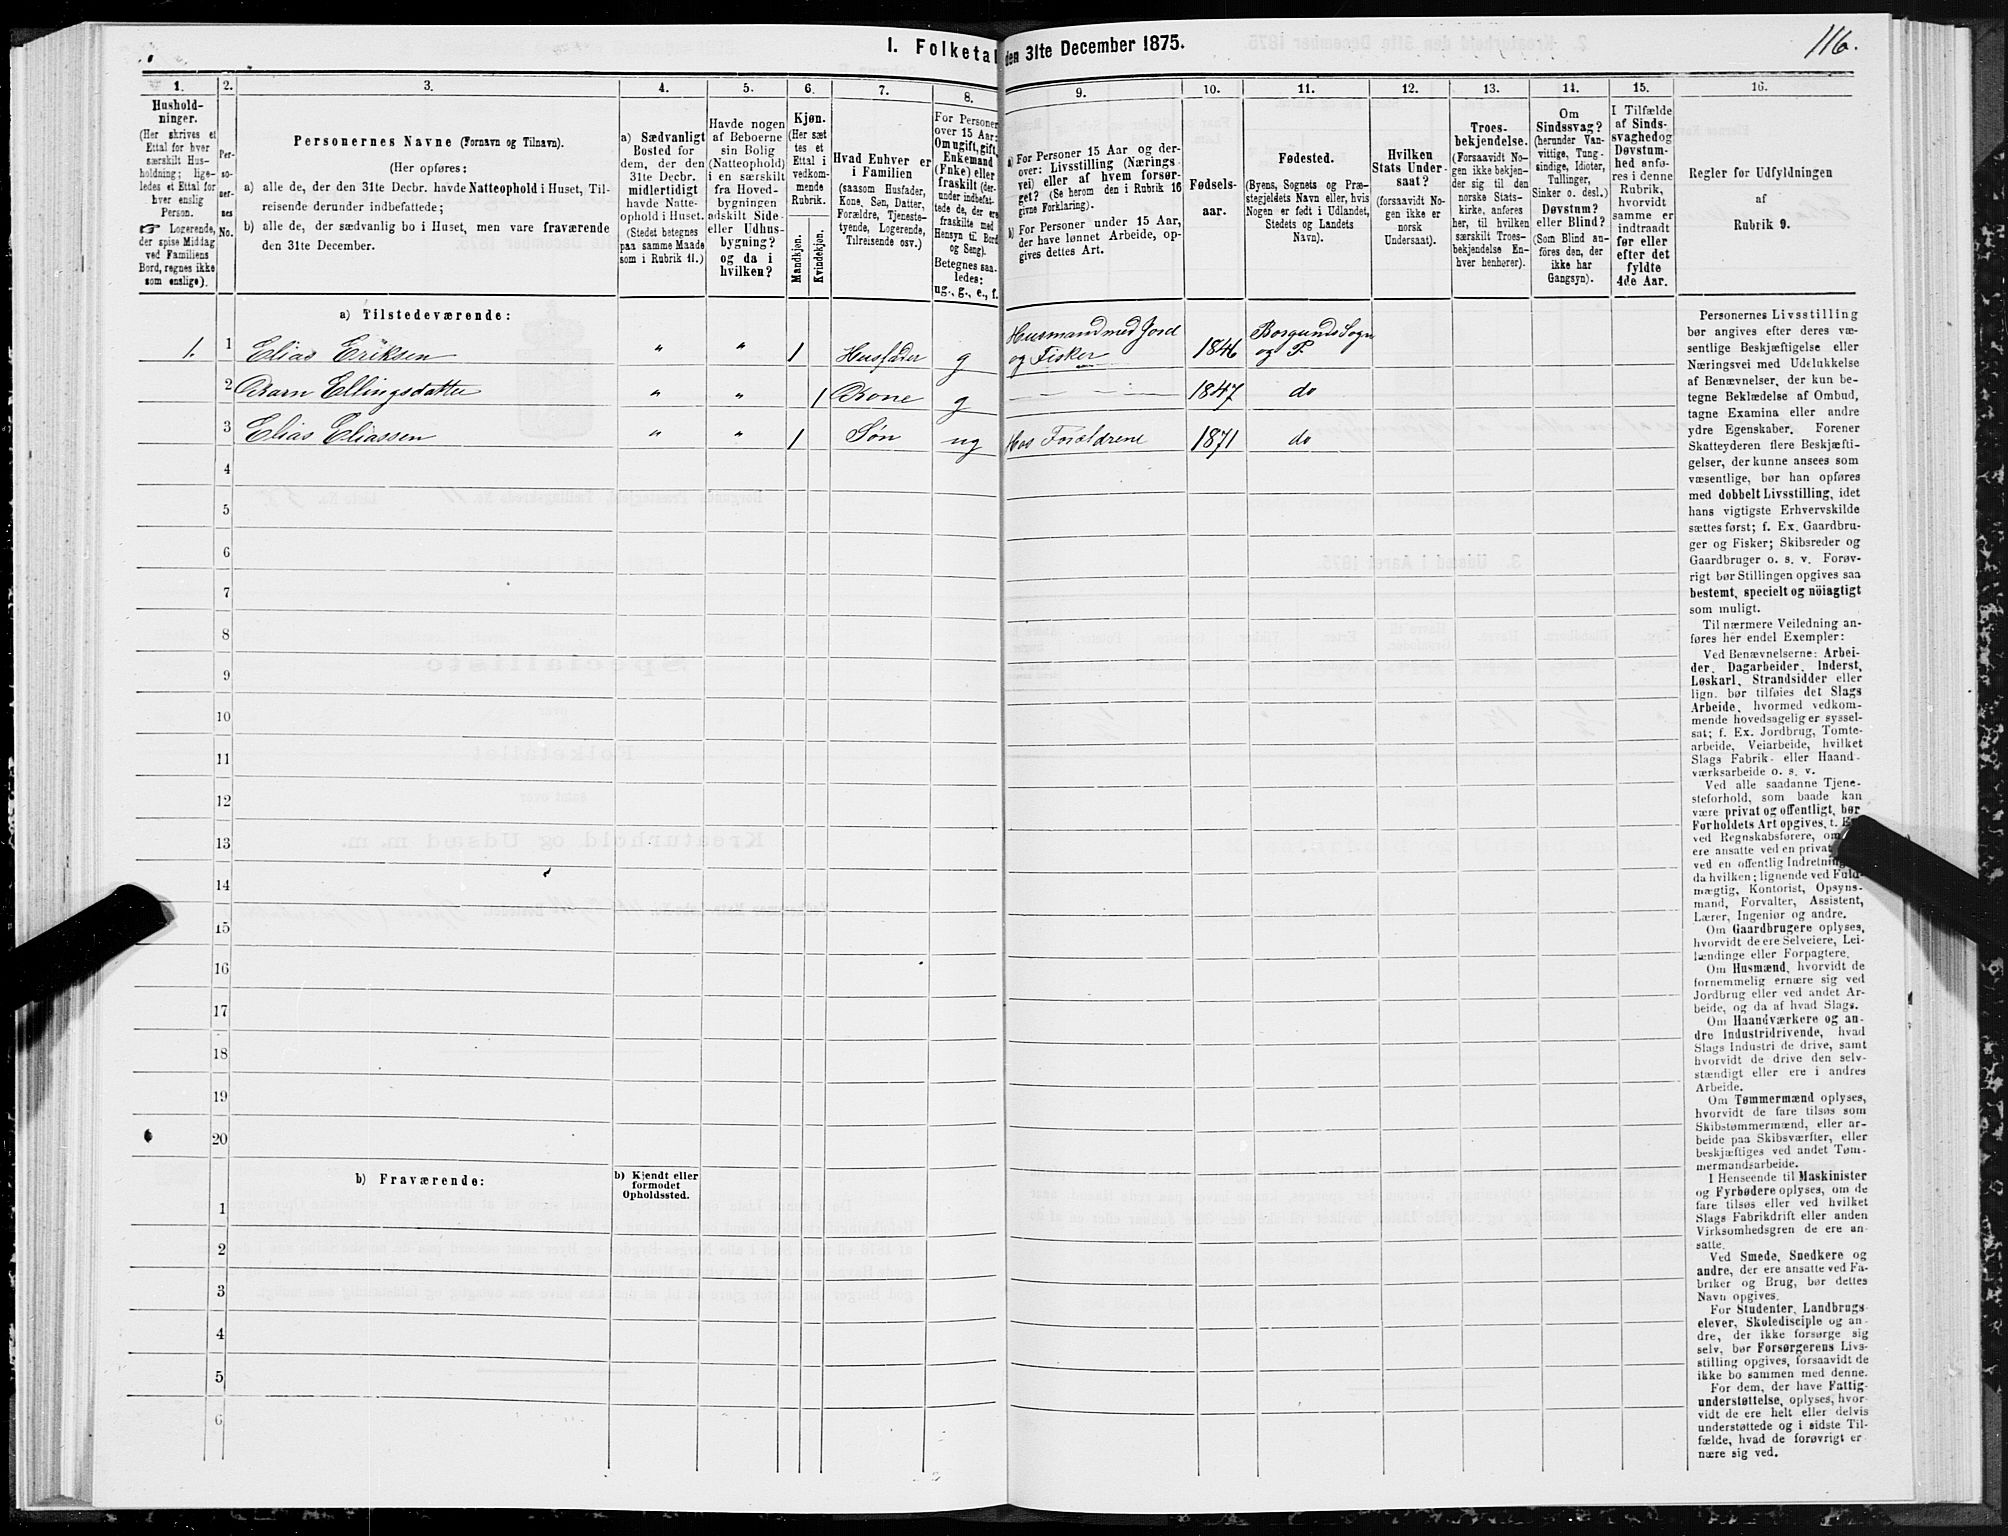 116.
I. Folketal den 31te December 1875.
1.
2.
3.
4.
5.
6.
7.
8.
9.
10.
11.
12.
13.
14.
15.
16.
Hushold-
ninger.
(Her skrives et
Ettal for hver
særskilt Hus-
holdning; lige-
ledes et Ettal for
hver enslig
Person.
☞ Logerende,
der spise Middag
ved Familiens
Bord, regnes ikke
som enslige).
Per-
so-
ner-
nes
No.
Personernes Navne (Fornavn og Tilnavn).
(Her opføres:
a) alle de, der den 31te Decbr. havde Natteophold i Huset, Til-
reisende derunder indbefattede;
b) alle de, der sædvanlig bo i Huset, men vare fraværende
den 31te December.
a) Sædvanligt
Bosted for
dem, der den
31te Decbr.
midlertidigt
havde Natte-
ophold i Huset.
(Stedet betegnes
paa samme Maade
som i Rubrik 11.)
Havde nogen
af Beboerne
sin Bolig
(Natteophold)
i en særskilt
fra Hoved-
bygningen
adskilt Side-
eller Udhus-
bygning?
og da i
hvilken?
Kjøn.
(Her sæt-
tes et
Ettal i
vedkom-
mende
Rubrik.
Mandkjøn.
Kvindekjøn.
Hvad Enhver er
i Familien
(saasom Husfader,
Kone, Søn, Datter,
Forældre, Tjeneste-
tyende, Logerende,
Tilreisende osv.)
For Personer
over 15 Aar:
Om ugift, gift,
Enkemand
(Enke) eller
fraskilt (der-
under indbefat-
tede de, der ere
fraskilte med
Hensyn til Bord
og Seng).
Betegnes saa-
ledes:
ug., g., e., f.
a) For Personer 15 Aar og der-
over: Livsstilling (Nærings-
vei) eller af hvem forsør-
get? (Se herom den i Rubrik 16
givne Forklaring).
b) For Personer under 15 Aar,
der have lønnet Arbeide, op-
gives dettes Art.
Fødsels-
aar.
Fødested.
(Byens, Sognets og Præ-
stegjeldets Navn, eller, hvis
Nogen er født i Udlandet,
Stedets og Landets
Navn).
Hvilken
Stats Under-
saat?
(forsaavidt No-
gen ikke er
norsk
Undersaat).
Troes-
bekjendelse.
(Forsaavidt No-
gen ikke bekjen-
der sig til den
norske Stats-
kirke, anføres
her, til hvilken
særskilt Troes-
bekjendelse En-
hver henhører).
Om
Sindssvag?
(herunder Van-
vittige, Tung-
sindige, Idioter,
Tullinger,
Sinker o. desl.)
Døvstum?
eller Blind?
(Som Blind an-
føres den, der
ikke har
Gangsyn).
I Tilfælde
af Sinds-
svaghed og
Døvstum-
hed anfø-
res i denne
Rubrik,
hvorvidt
samme er
indtraadt
før eller
efter det
fyldte
4de Aar.
Regler for Udfyldningen
af
Rubrik 9.
a) Tilstedeværende:
1. 1 Elias Eriksen " " 1 Husfader g Husmand med Jord og Fisker 1846 Borgunds Sogn og P.
2 Barn Ellingsdatter " " 1 Kone g 1847 do
3 Elias Eliassen " " 1 Søn ug Hos Forældrene 1871 do
4
5
6
7
8
9
10
11
12
13
14
15
16
17
18
19
20
b) Fraværende:
b) Kjendt eller
formodet
Opholdssted.
1
2
3
4
5
6
Personernes Livsstilling
bør angives efter deres væ-
sentlige Beskjæftigelse eller
Næringsvei med Udelukkelse
af Benævnelser, der kun be-
tegne Beklædelse af Ombud,
tagne Examina eller andre
ydre Egenskaber. Forener
Skatteyderen flere Beskjæfti-
gelser, der kunne ansees som
væsentlige, bør han opføres
med dobbelt Livsstilling, idet
hans vigtigste Erhvervskilde
sættes først; f. Ex. Gaardbru-
ger og Fisker; Skibsreder og
Gaardbruger o. s. v. Forøv-
rigt bør Stillingen opgives saa
bestemt, specielt og nøiagtigt
som muligt.
Til nærmere Veiledning an-
føres her endel Exempler:
Ved Benævnelserne: Arbei-
der, Dagarbeider, Inderst,
Løskarl, Strandsidder eller
lign. bør tilføies det Slags
Arbeide, hvormed vedkom-
mende hovedsagelig er syssel-
sat; f. Ex. Jordbrug, Tomte-
arbeide, Veiarbeide, hvilket
Slags Fabrik- eller Haand-
værksarbeide o. s. v.
Ved alle saadanne Tjene-
steforhold, som baade kan
være privat og offentligt, bør
Forholdets Art opgives, t. E
ved Regnskabsførere, om
ere ansatte ved en privat
ved en offentlig Indretning
da hvilken; lignende ved Fuld-
mægtig, Kontorist, Opsyns-
mand, Forvalter, Assistent,
Lærer, Ingeniør og andre.
Om Gaardbrugere oplyses,
hvorvidt de ere Selveiere, Lei-
lændinge eller Forpagtere.
Om Husmænd, hvorvidt de
fornemmelig ernære sig ved
Jordbrug eller ved andet Ar-
beide, og da af hvad Slags.
Om Haandværkere og an-
dre Industridrivende, hvad
Slags Industri de drive, samt
hvorvidt de drive den selv-
stændigt eller ere i andres
Arbeide.
Om Tømmermænd oplyses,
hvorvidt de fare tilsøs som
Skibstømmermænd, eller ar-
beide paa Skibsværfter, eller
beskjæftiges ved andet Tøm-
mermandsarbeide.
I Henseende til Maskinister
og Fyrbødere oplyses, om de
fare tilsøs eller ved hvilket
Slags Fabrikdrift eller anden
Virksomhedsgren de ere an-
satte.
Ved Smede, Snedkere og
andre, der ere ansatte ved Fa-
briker og Brug, bør dettes
Navn opgives.
For Studenter, Landbrugs-
elever, Skoledisciple og an-
dre, der ikke forsørge sig
selv, bør Forsørgerens Livs-
stilling opgives, forsaavidt de
ikke bo sammen med denne.
For dem, der have Fattig-
understøttelse, oplyses, hvor-
vidt de ere helt eller delvis
understøttede og i sidste Til-
fælde, hvad de forøvrigt er-
nære sig ved.